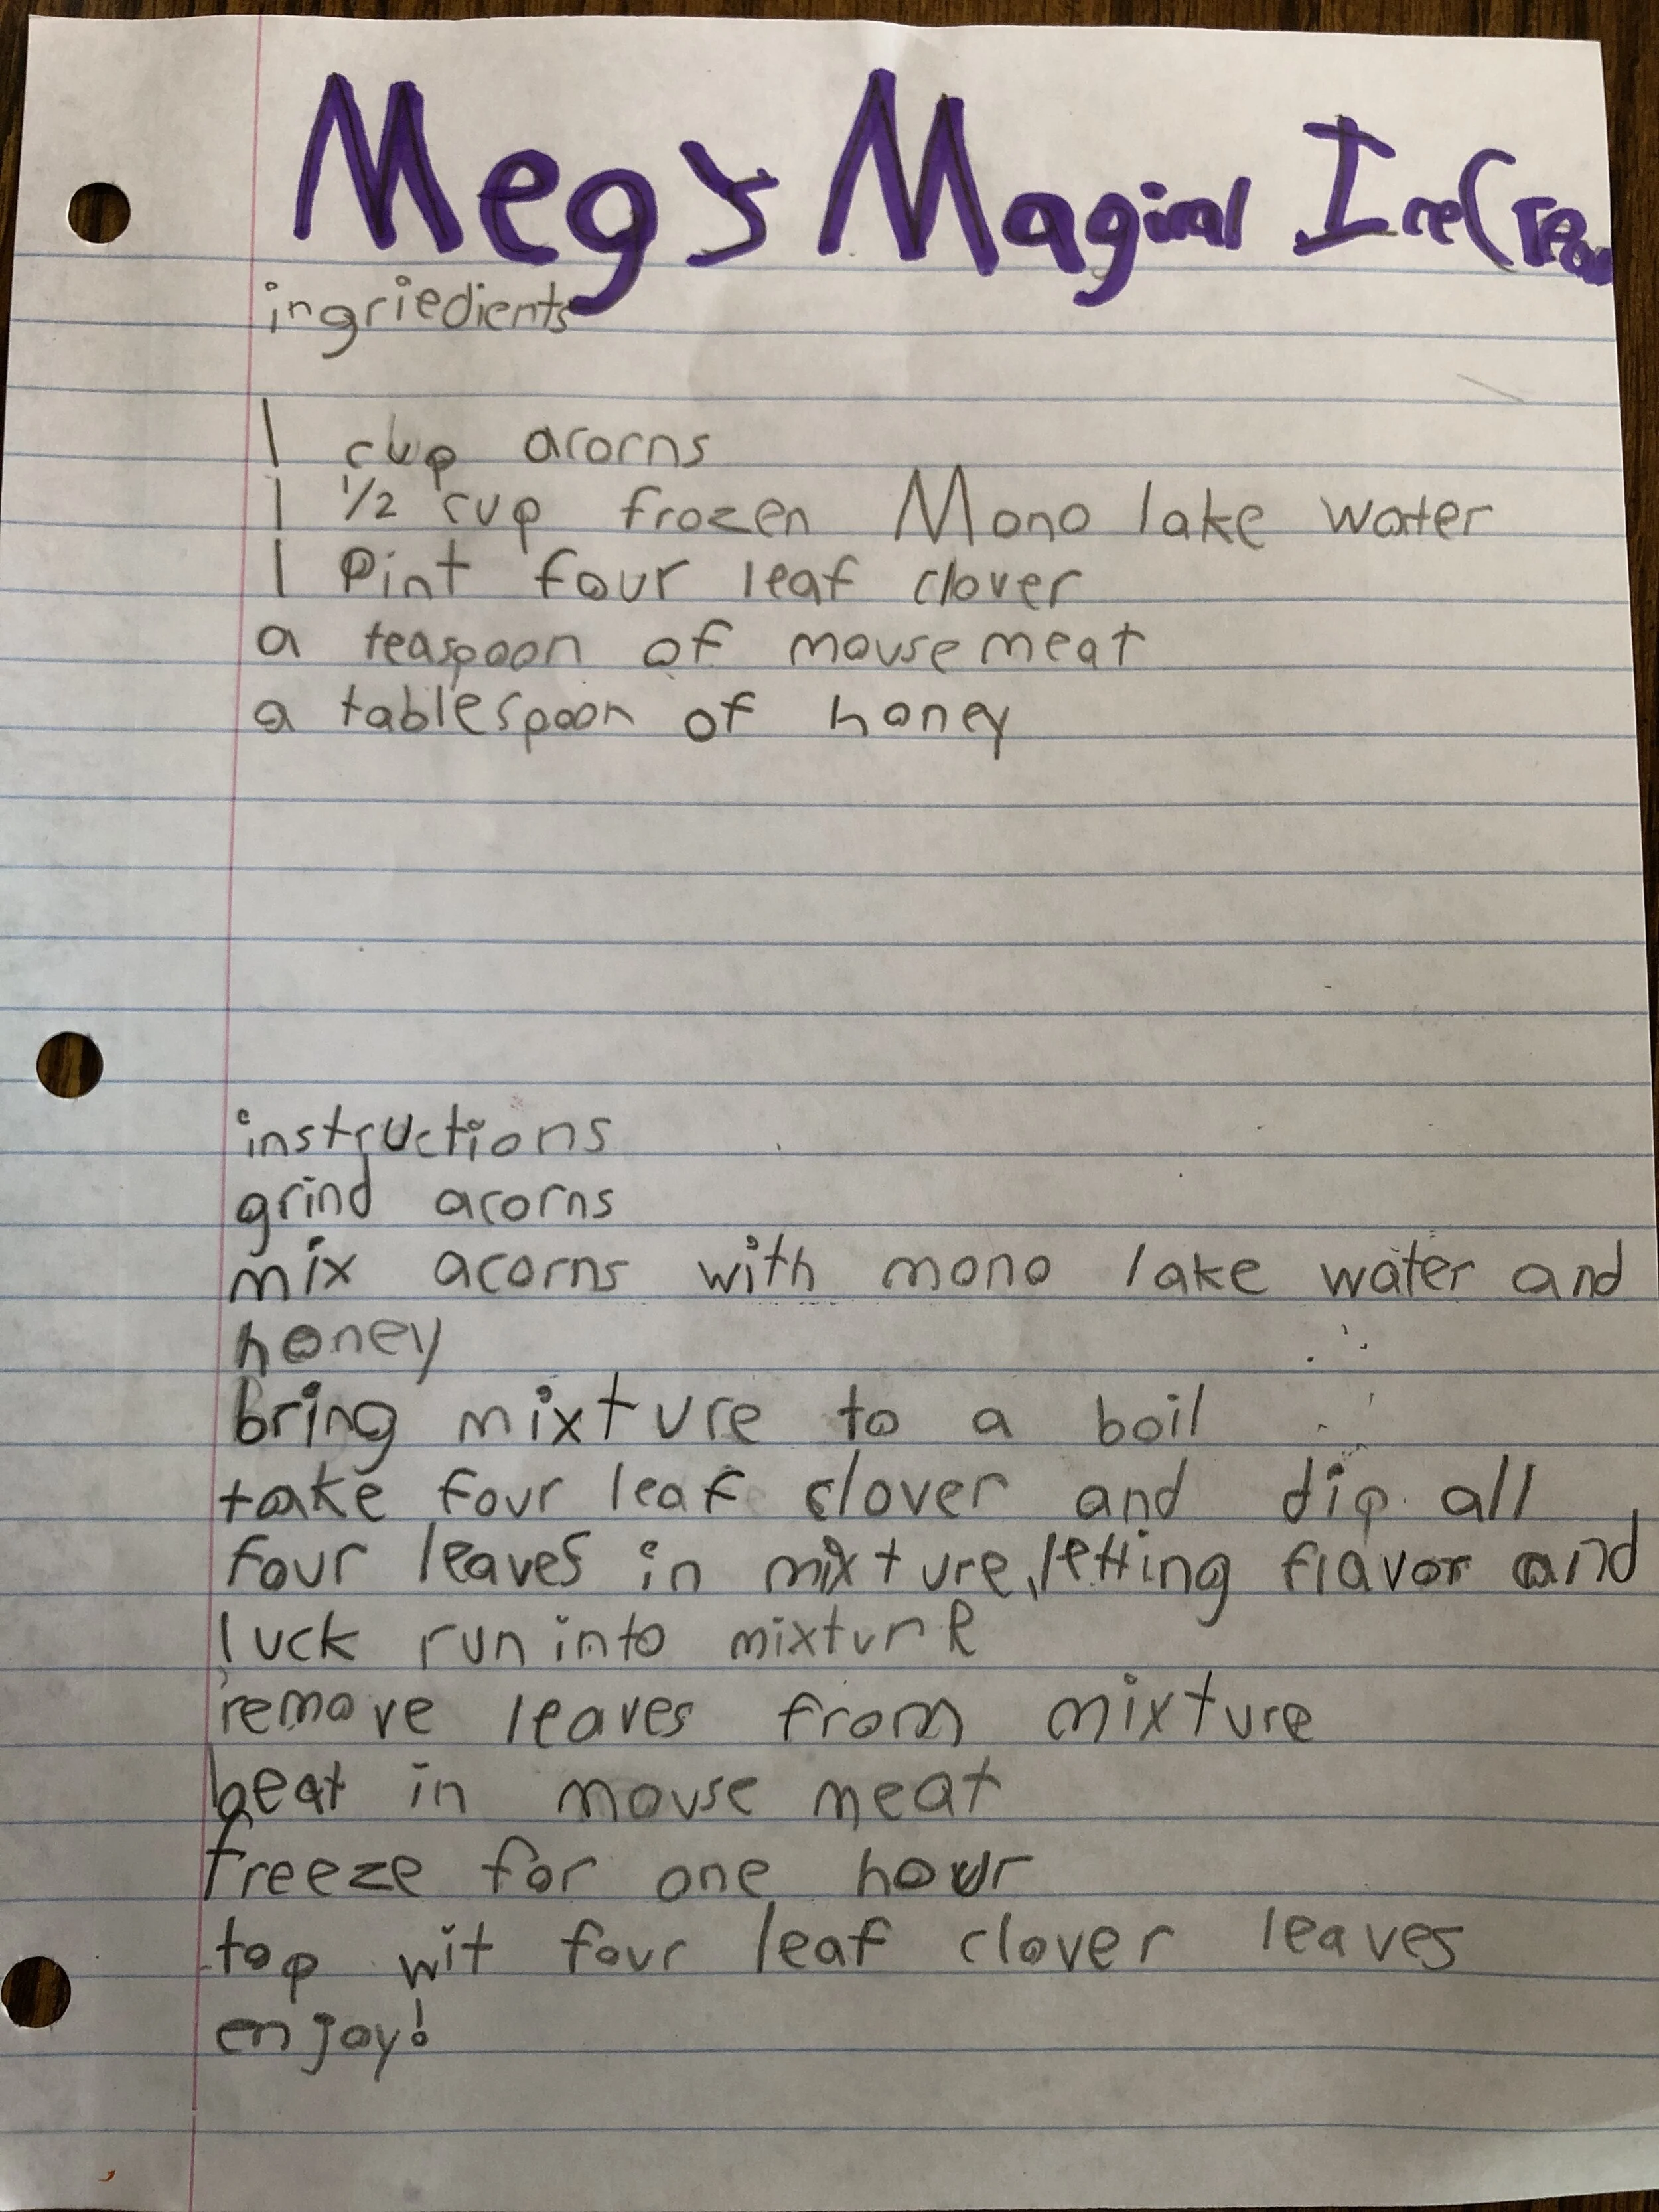 Meg's Magical Ice Cream
ingriedients
1 cup acorns
1 1/2 cup frozen Mono lake water
1 Pint four leaf clover
a teaspoon of mouse meat
a tablespoon of honey
instructions
grind acorns
mix acorns with mono lake water and
honey
bring mixture to a boil
take four leaf clover and dip all
four leaves in mixture, letting flavor and
luck run into mixture
remove leaves from mixture
beat in mouse meat
freeze for one hour
top wit four leaf clover leaves
enjoy!